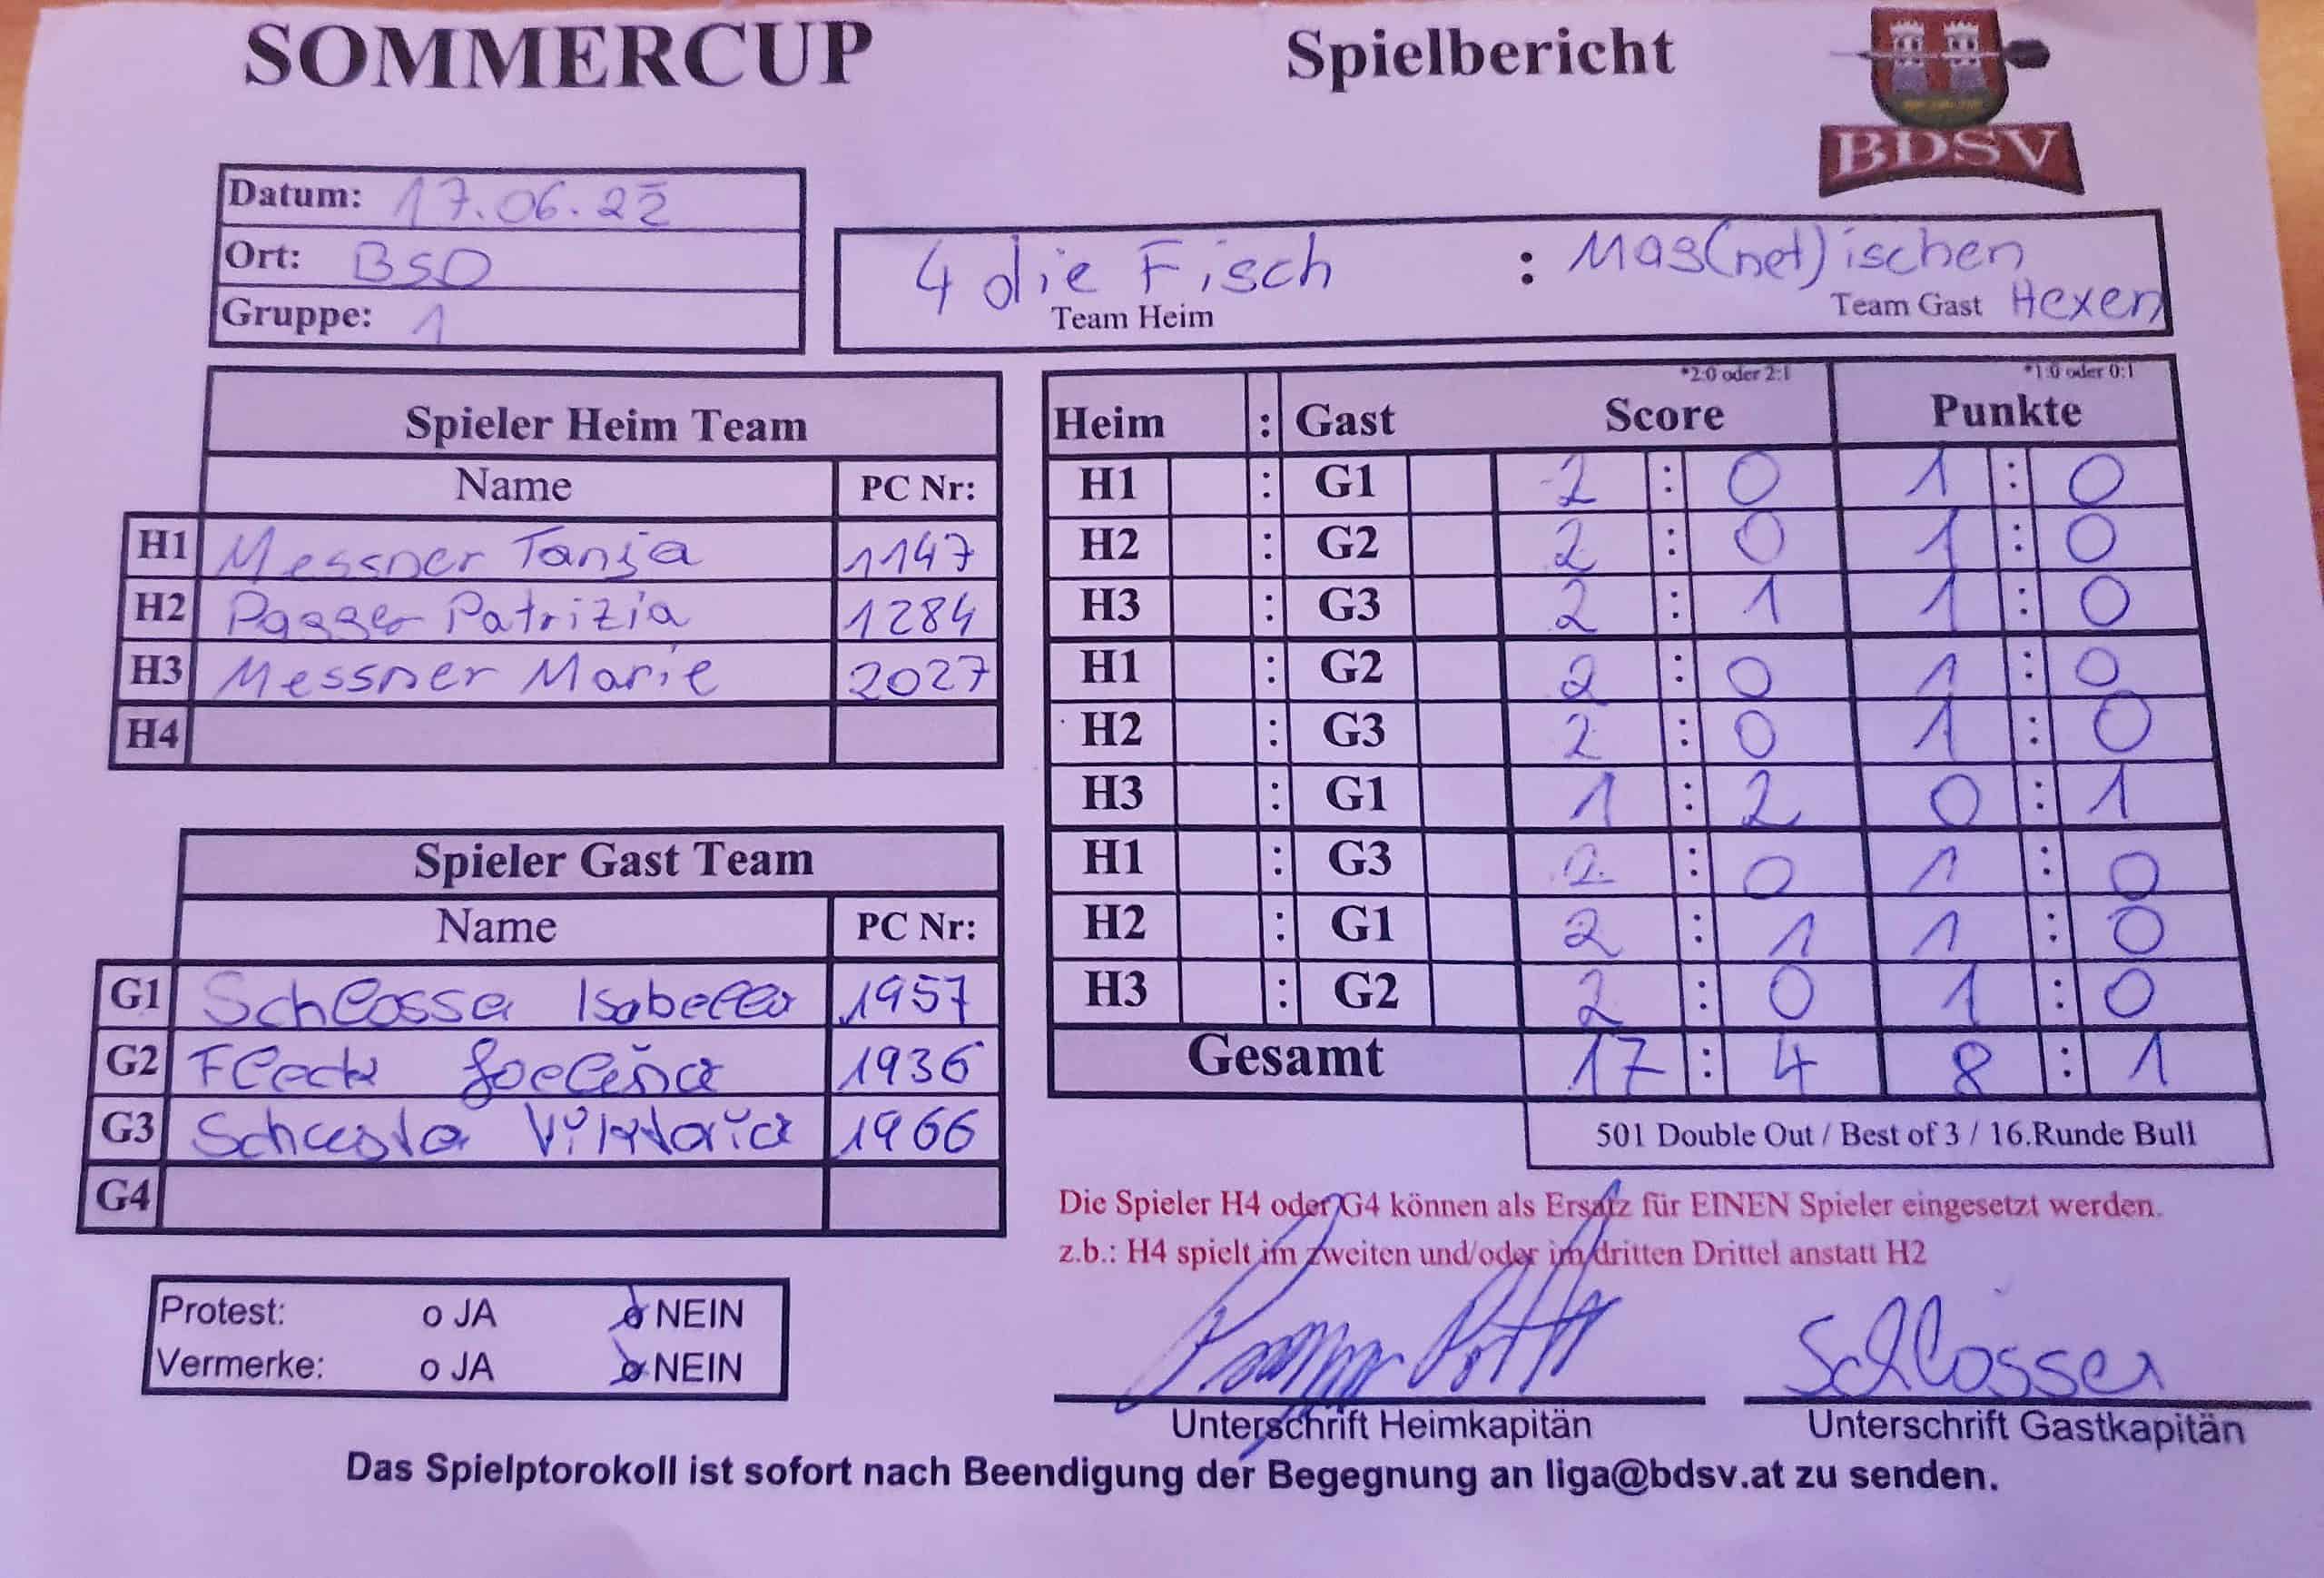 SOMMERCUP Spielbericht
BDSV
Datum: 17.06.22
Ort: BSD
Gruppe: 1
4 die Fisch : Mag(net)ischen
Team Heim Team Gast Hexen
Spieler Heim Team
Name PC Nr:
H1 Messner Tanja 1147
H2 Pagger Patrizia 1284
H3 Messner Marie 2027
H4
Spieler Gast Team
Name PC Nr:
G1 Schlosser Isabella 1957
G2 Fleck 1936
G3 Schuster Viktoria 1966
G4
*2:0 oder 2:1 *1:0 oder 0:1
Heim : Gast Score Punkte
H1 : G1 2 : 0 1 : 0
H2 : G2 2 : 0 1 : 0
H3 : G3 2 : 1 1 : 0
H1 : G2 2 : 0 1 : 0
H2 : G3 2 : 0 1 : 0
H3 : G1 1 : 2 0 : 1
H1 : G3 2 : 0 1 : 0
H2 : G1 2 : 1 1 : 0
H3 : G2 2 : 0 1 : 0
Gesamt 17 : 4 8 : 1
501 Double Out / Best of 3 / 16.Runde Bull
Die Spieler H4 oder G4 können als Ersatz für EINEN Spieler eingesetzt werden.
z.b.: H4 spielt im zweiten und/oder im dritten Drittel anstatt H2
Protest: o JA o NEIN
Vermerke: o JA o NEIN
Schlosser
Unterschrift Heimkapitän Unterschrift Gastkapitän
Das Spielptorokoll ist sofort nach Beendigung der Begegnung an liga@bdsv.at zu senden.